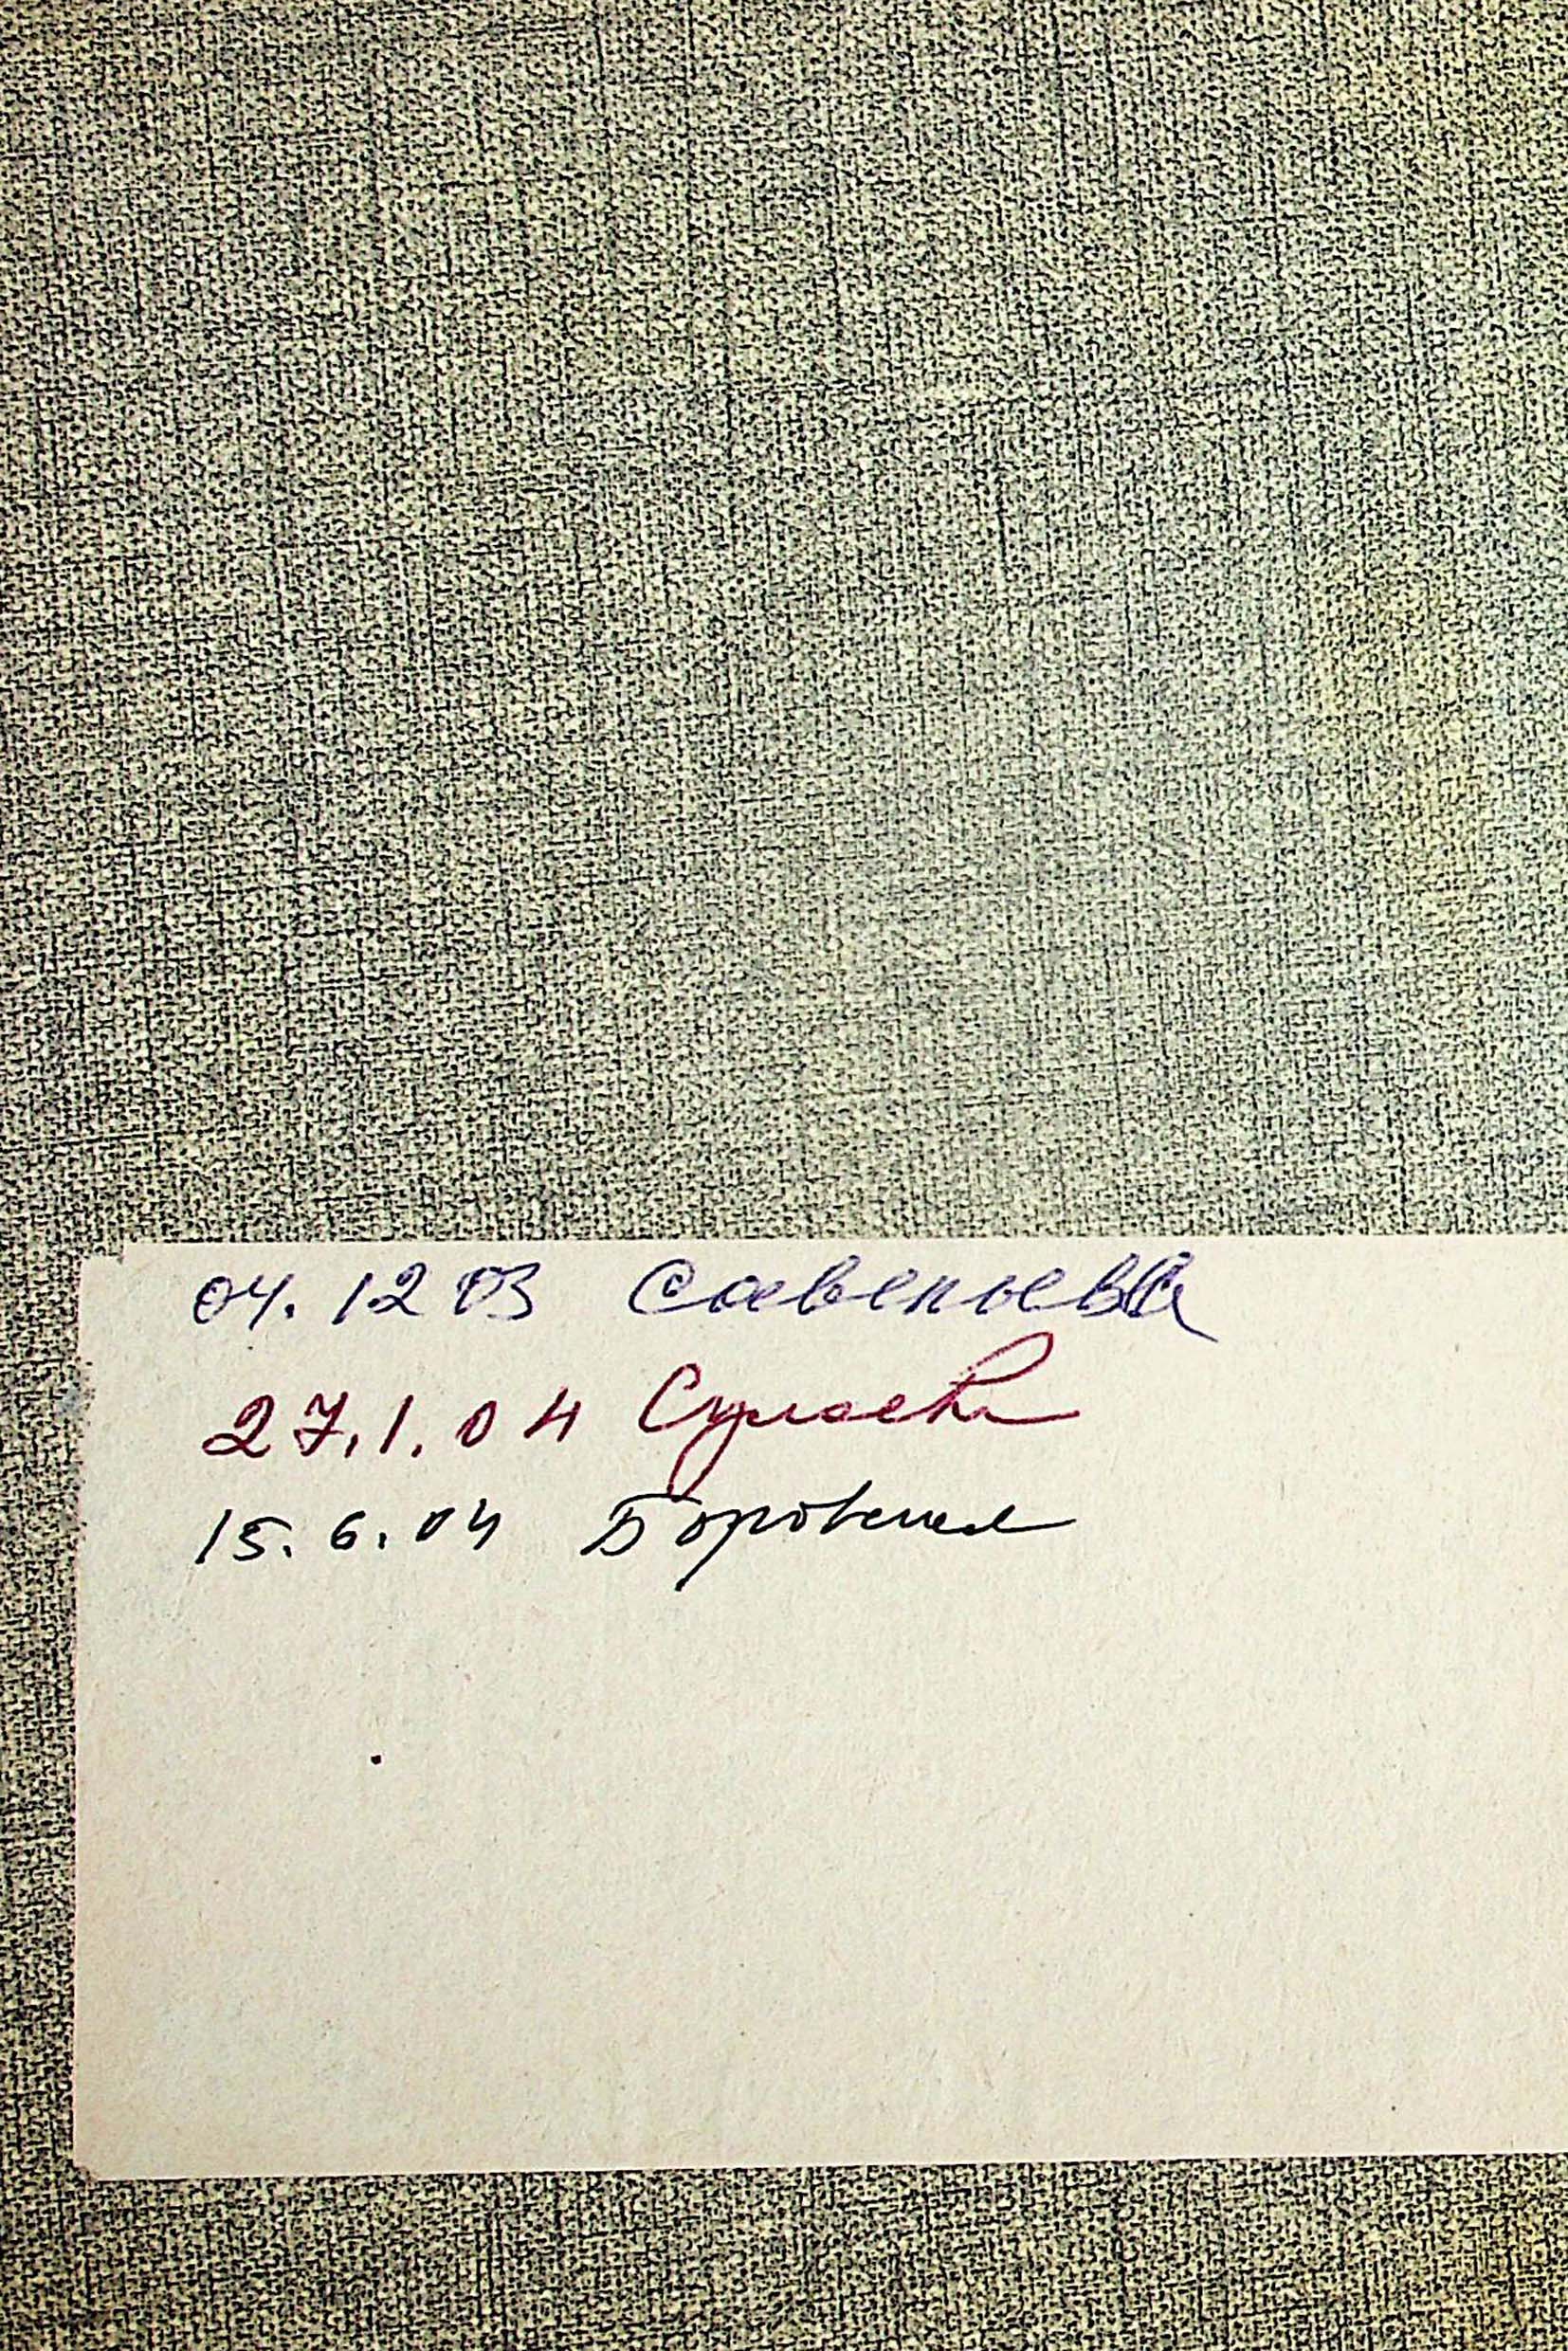 04.12 03 Савельева
27.1.04
15.6.04 Боровская